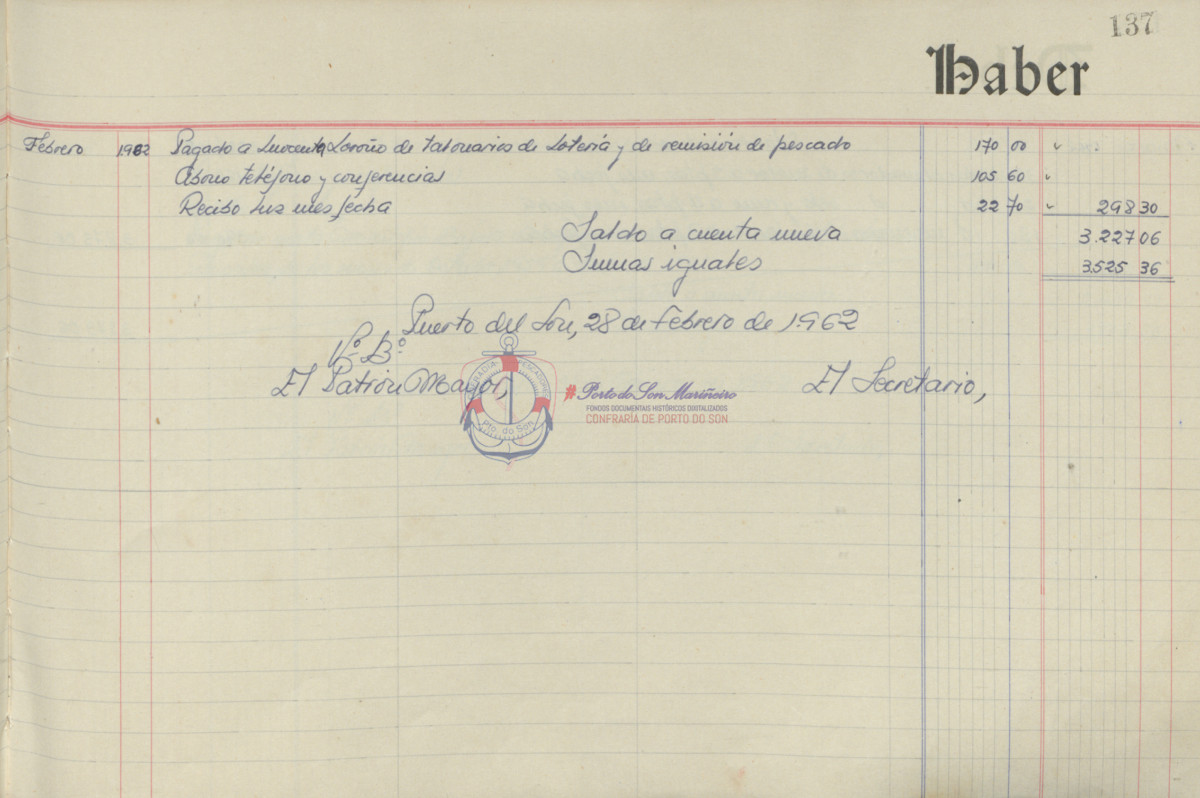 137
Haber
Febrero 1962 Pagado a Inocente Loroño de talonarios de Lotería y de remisión de pescado 170 00 "
Abono teléfono y conferencias 105 60 "
Recibo luz mes fecha 22 70 " 298 30
Saldo a cuenta nueva 3.227 06
Sumas iguales 3.525 36
Puerto del Son, 28 de Febrero de 1.962
Vº. Bº.
El Patrón Mayor, El Secretario,
PESCADORES
Pto. do Son
#Porto do Son Mariñeiro
FONDOS DOCUMENTAIS HISTÓRICOS DIXITALIZADOS
CONFRARÍA DE PORTO DO SON